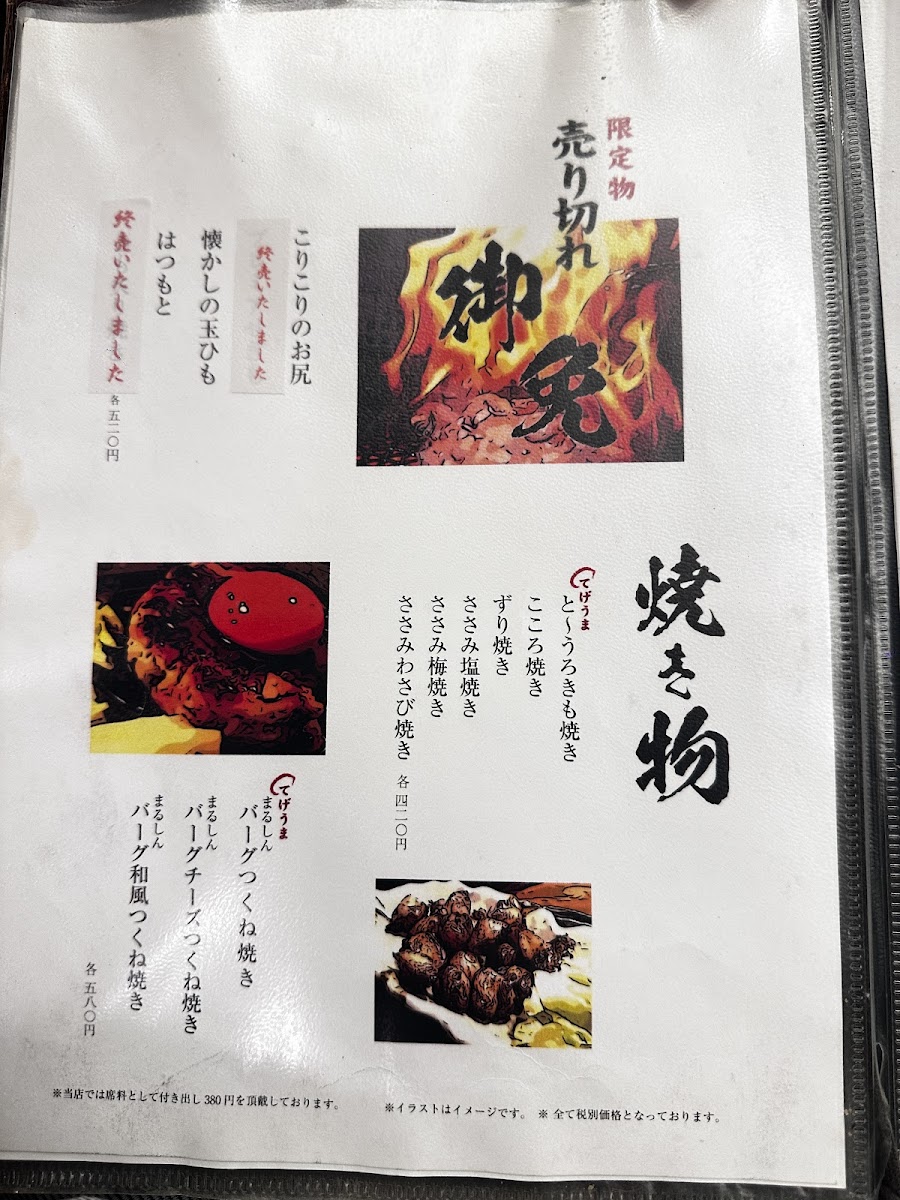 限定物
売り切れ
御免
こりこりのお尻
終売いたしました
懐かしの玉ひも
はつもと
終売いたしました
各 五二〇円
焼き物
てげうま
と〜うろきも焼き
こころ焼き
ずり焼き
ささみ塩焼き
ささみ梅焼き
ささみわさび焼き
各 四二〇円
てげうま
まるしん
バーグつくね焼き
まるしん
バーグチーズつくね焼き
まるしん
バーグ和風つくね焼き
各 五八〇円
※当店では席料として付き出し 380 円を頂戴しております。
※イラストはイメージです。 ※ 全て税別価格となっております。